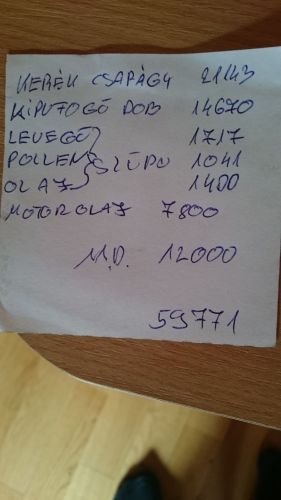 KERÉK CSAPÁGY 21143
KIPUFOGÓ DOB 14670
LEVEGŐ 1717
POLLEN SZŰRŐ 1041
OLAJ 1400
MOTOROLAJ 7800
M.D. 12000
59771